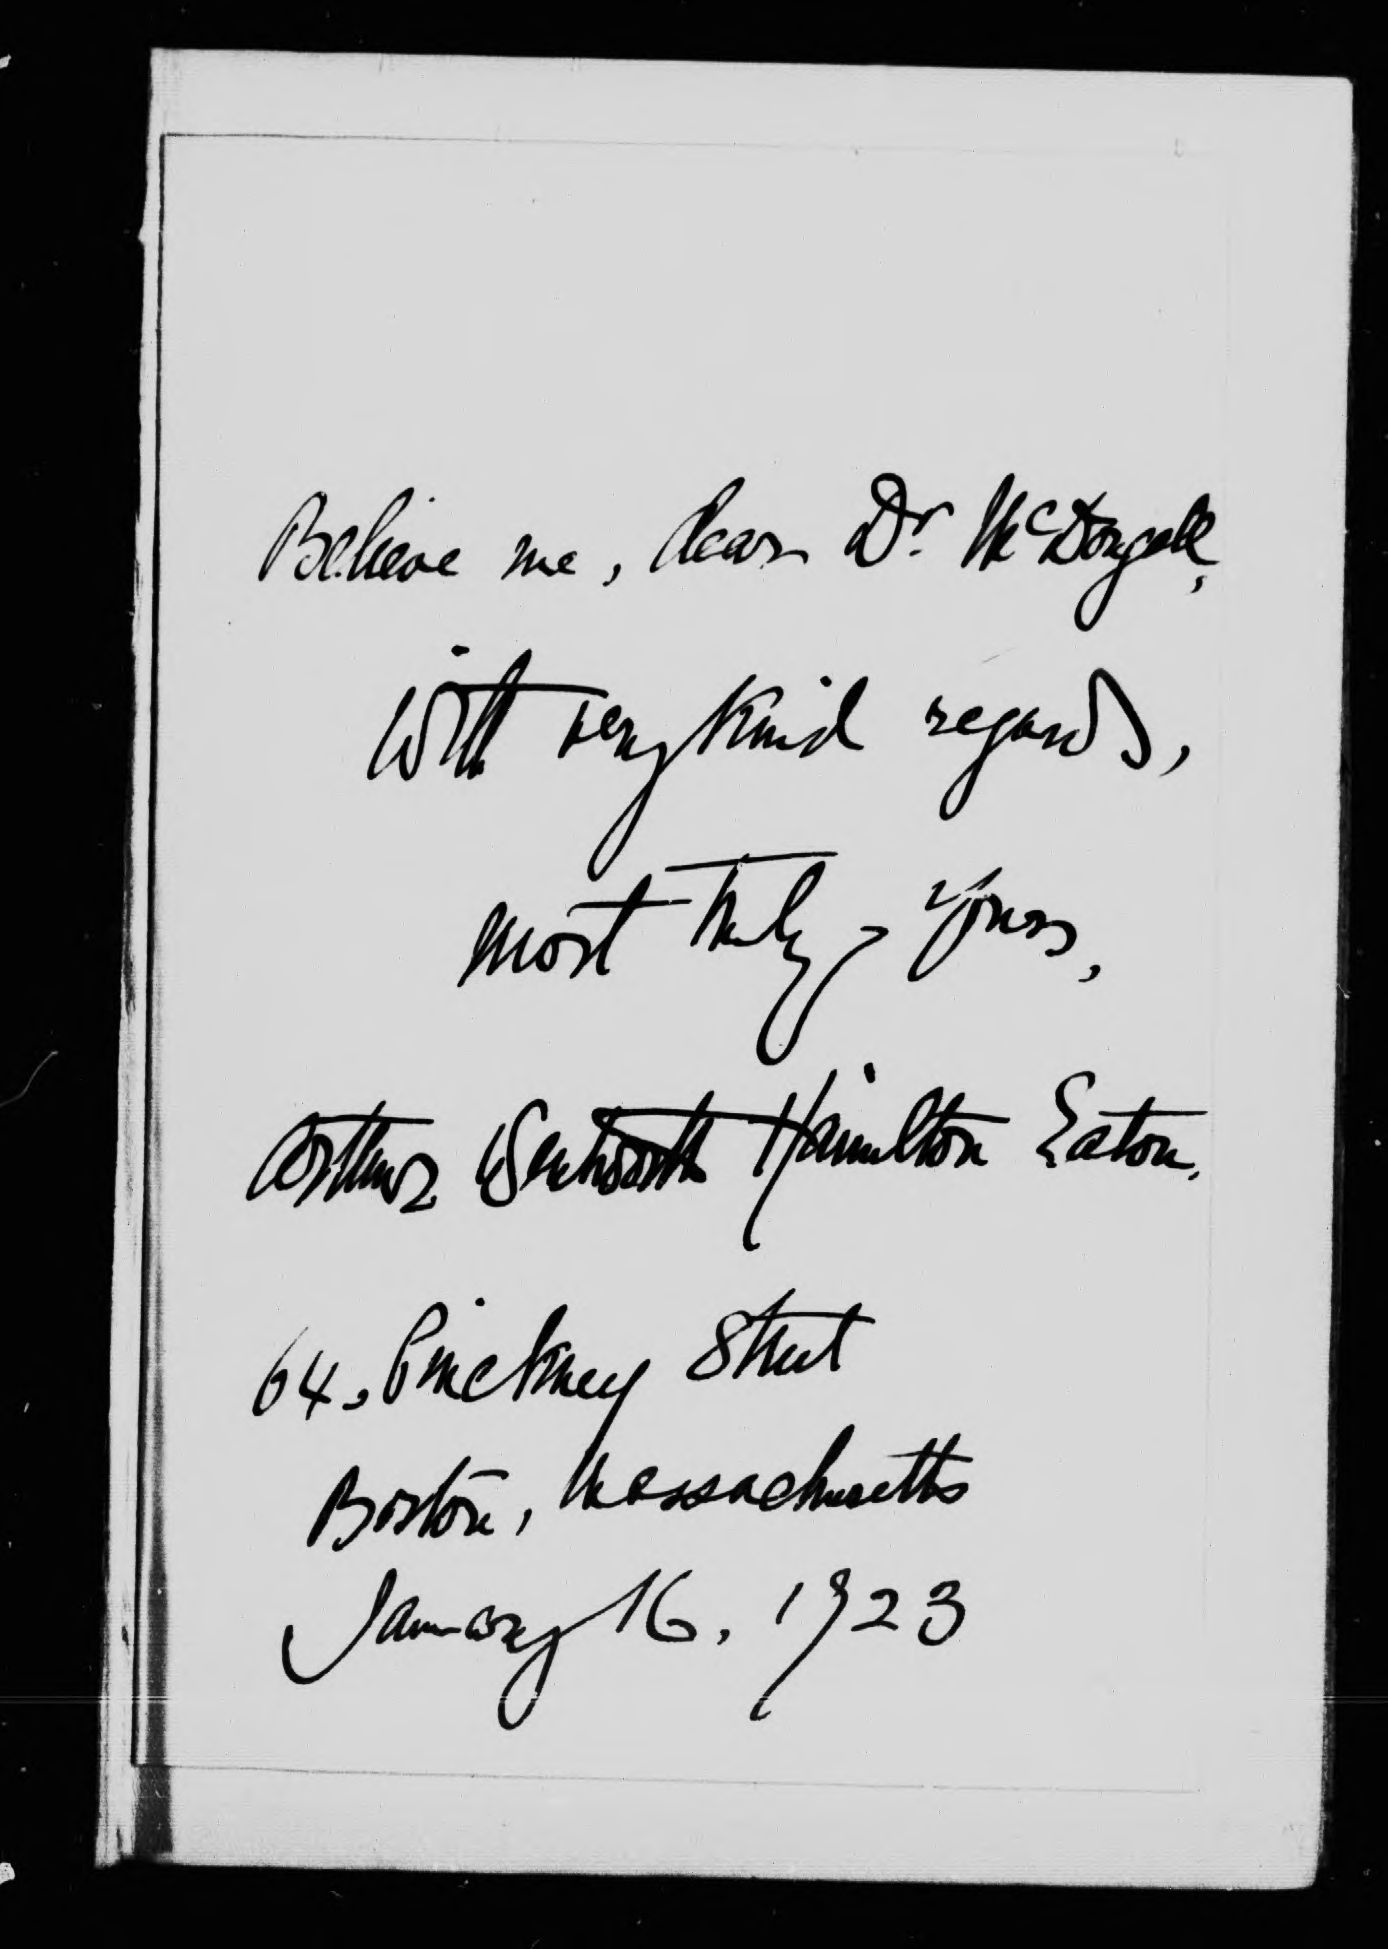 Believe me, dear Dr. McDougall,
with very kind regards,
most truly yours,
Arthur Wentworth Hamilton Eaton.
64, Pinckney Street
Boston, Massachusetts
January 16, 1923